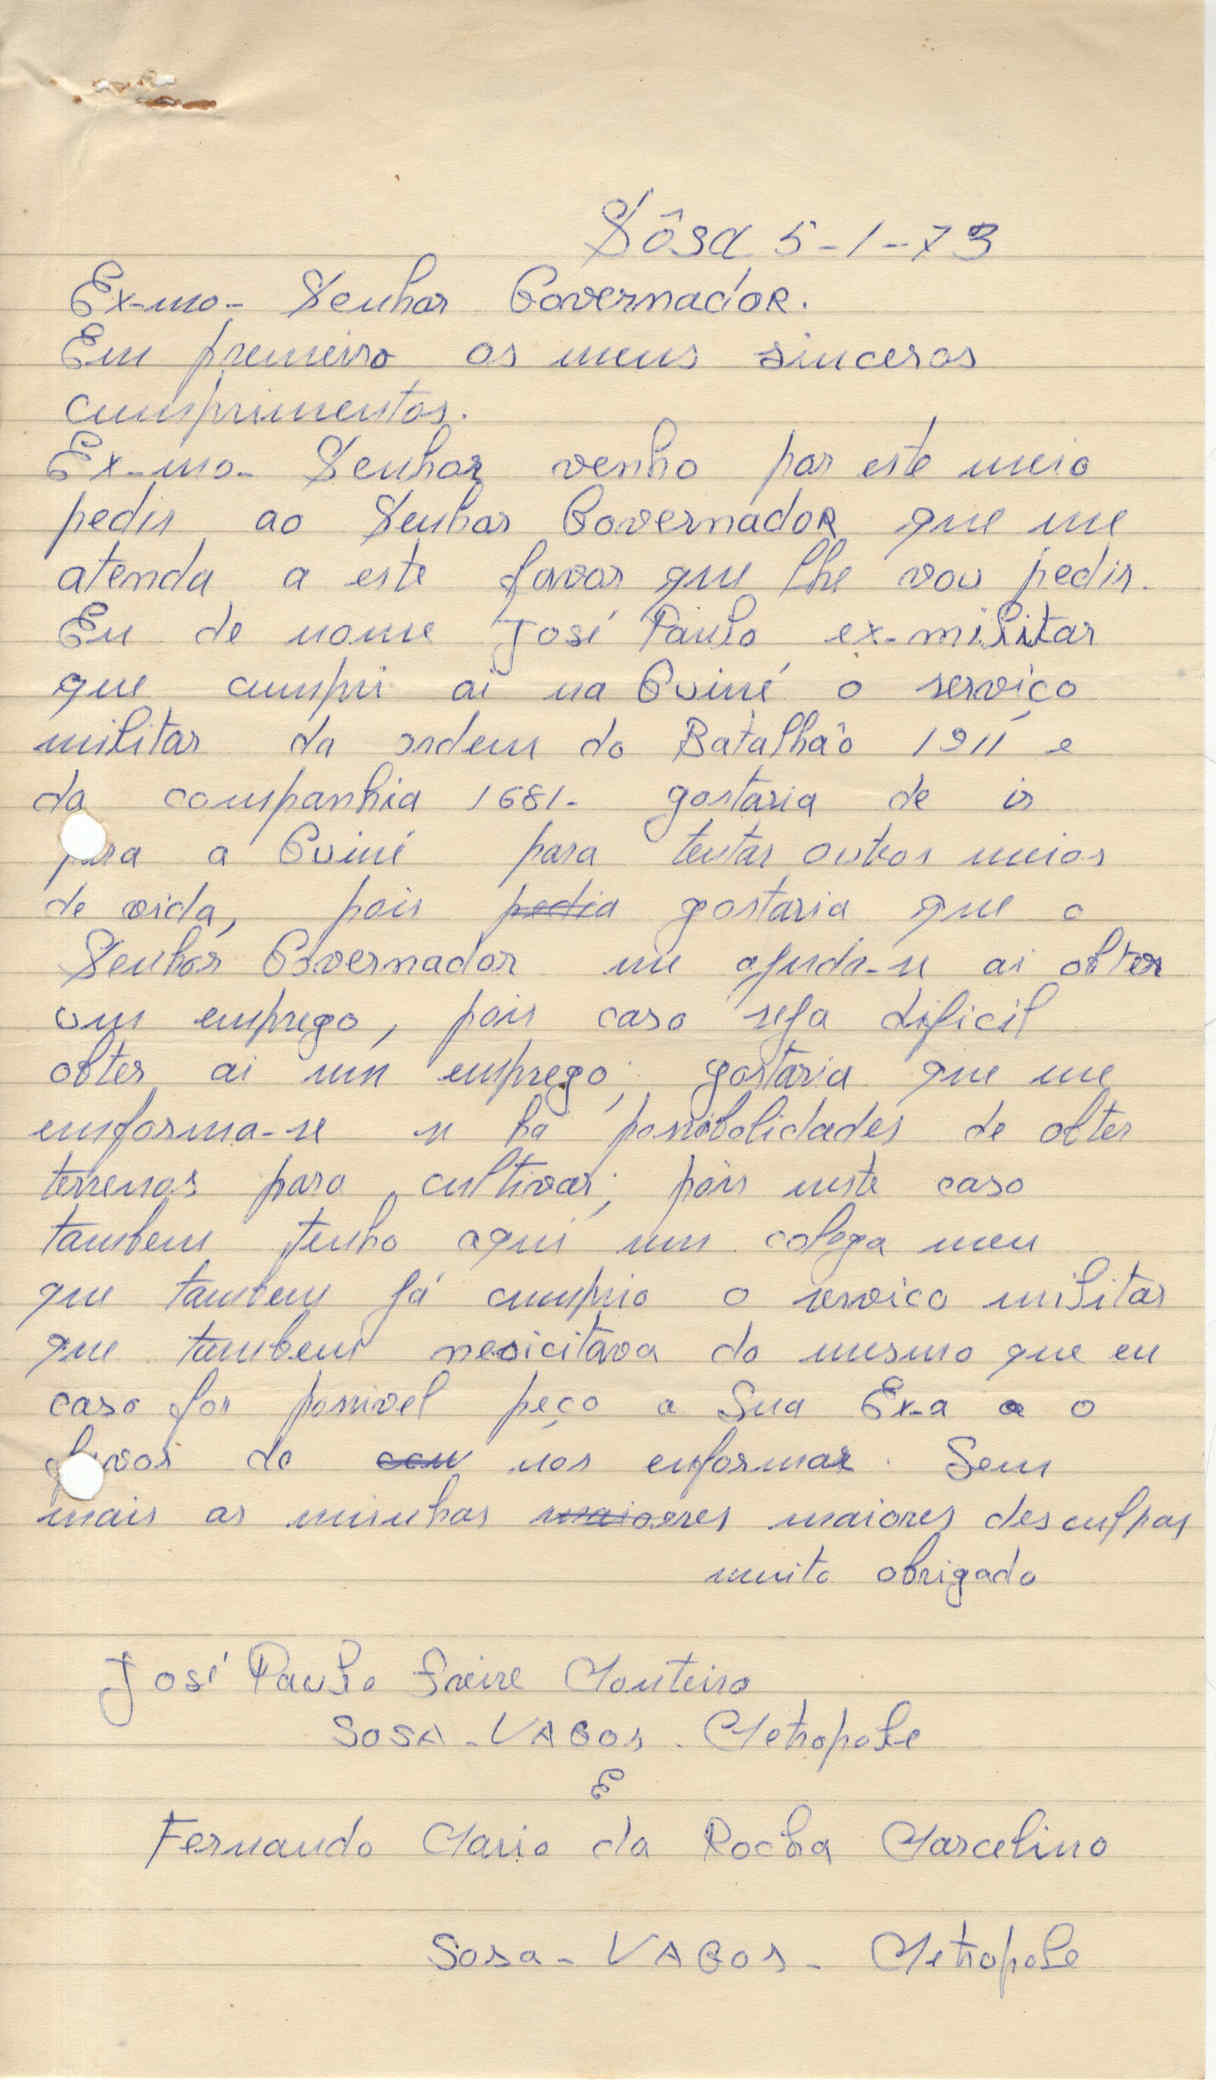 Sôsa 5-1-73
Ex-mo- Senhor Governador.
Em premeiro os meus sinceros
cumprimentos.
Ex-mo- Senhor venho por este meio
pedir ao Senhor Governador que me
atenda a este favor que lhe vou pedir.
Eu de nome José Paulo ex-militar
que cumpri ai na Guiné o serviço
militar da ordem do Batalhão 1911 e
da companhia 1681- gostaria de ir
para a Guiné para tentar outros meios
de vida, pois pedia gostaria que o
Senhor Governador me ajuda-se ai obter
um emprego, pois caso seja dificil
obter ai um emprego, gostaria que me
emforma-se se há possibolidades de obter
terrenos para cultivar, pois neste caso
tambem tenho aqui um colega meu
que tambem já cumprio o serviço militar
que tambem nesicitava do mesmo que eu
caso for possivel peço a Sua Ex-a o
favor de nos enformar. Sem
mais as minhas maiores desculpas
muito obrigado
José Paulo Freire Monteiro
SOSA-VAGOS-Metropole
E
Fernando Mario da Rocha Marcelino
Sosa-VAGOS-Metropole